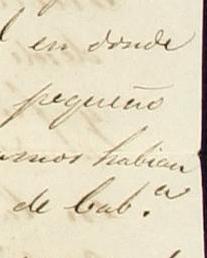 en donde
pequeño
habian
de Cab.ª